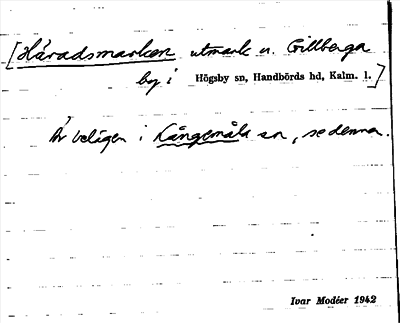 [Häradsmarken utmark u. Gillberga
by i Högsby sn, Handbörds hd, Kalm. l.]
Är belägen i Långemåla sn, se denna.
Ivar Modéer 1942